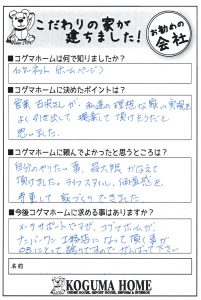 こだわりの家が
建ちました!
お勧めの
会社
■コグマホームは何で知りましたか?
インターネット(ホームページ)
■コグマホームに決めたポイントは?
営業 石沢さんが、私達の理想な家の実現を
よく引き出して 提案して 頂けそうだと
思いました。
■コグマホームに頼んでよかったと思うところは?
自分のやりたい事、最大限 かなえて
頂けました。ライフスタイル、価値感を
尊重して 家づくりできました
■今後コグマホームに求める事はありますか?
サポートですが、コグマホームが
ナンバーワン工務店になって頂く事が
OBにとって誇りですので がんばって下さい
名前
KOGUMA HOME